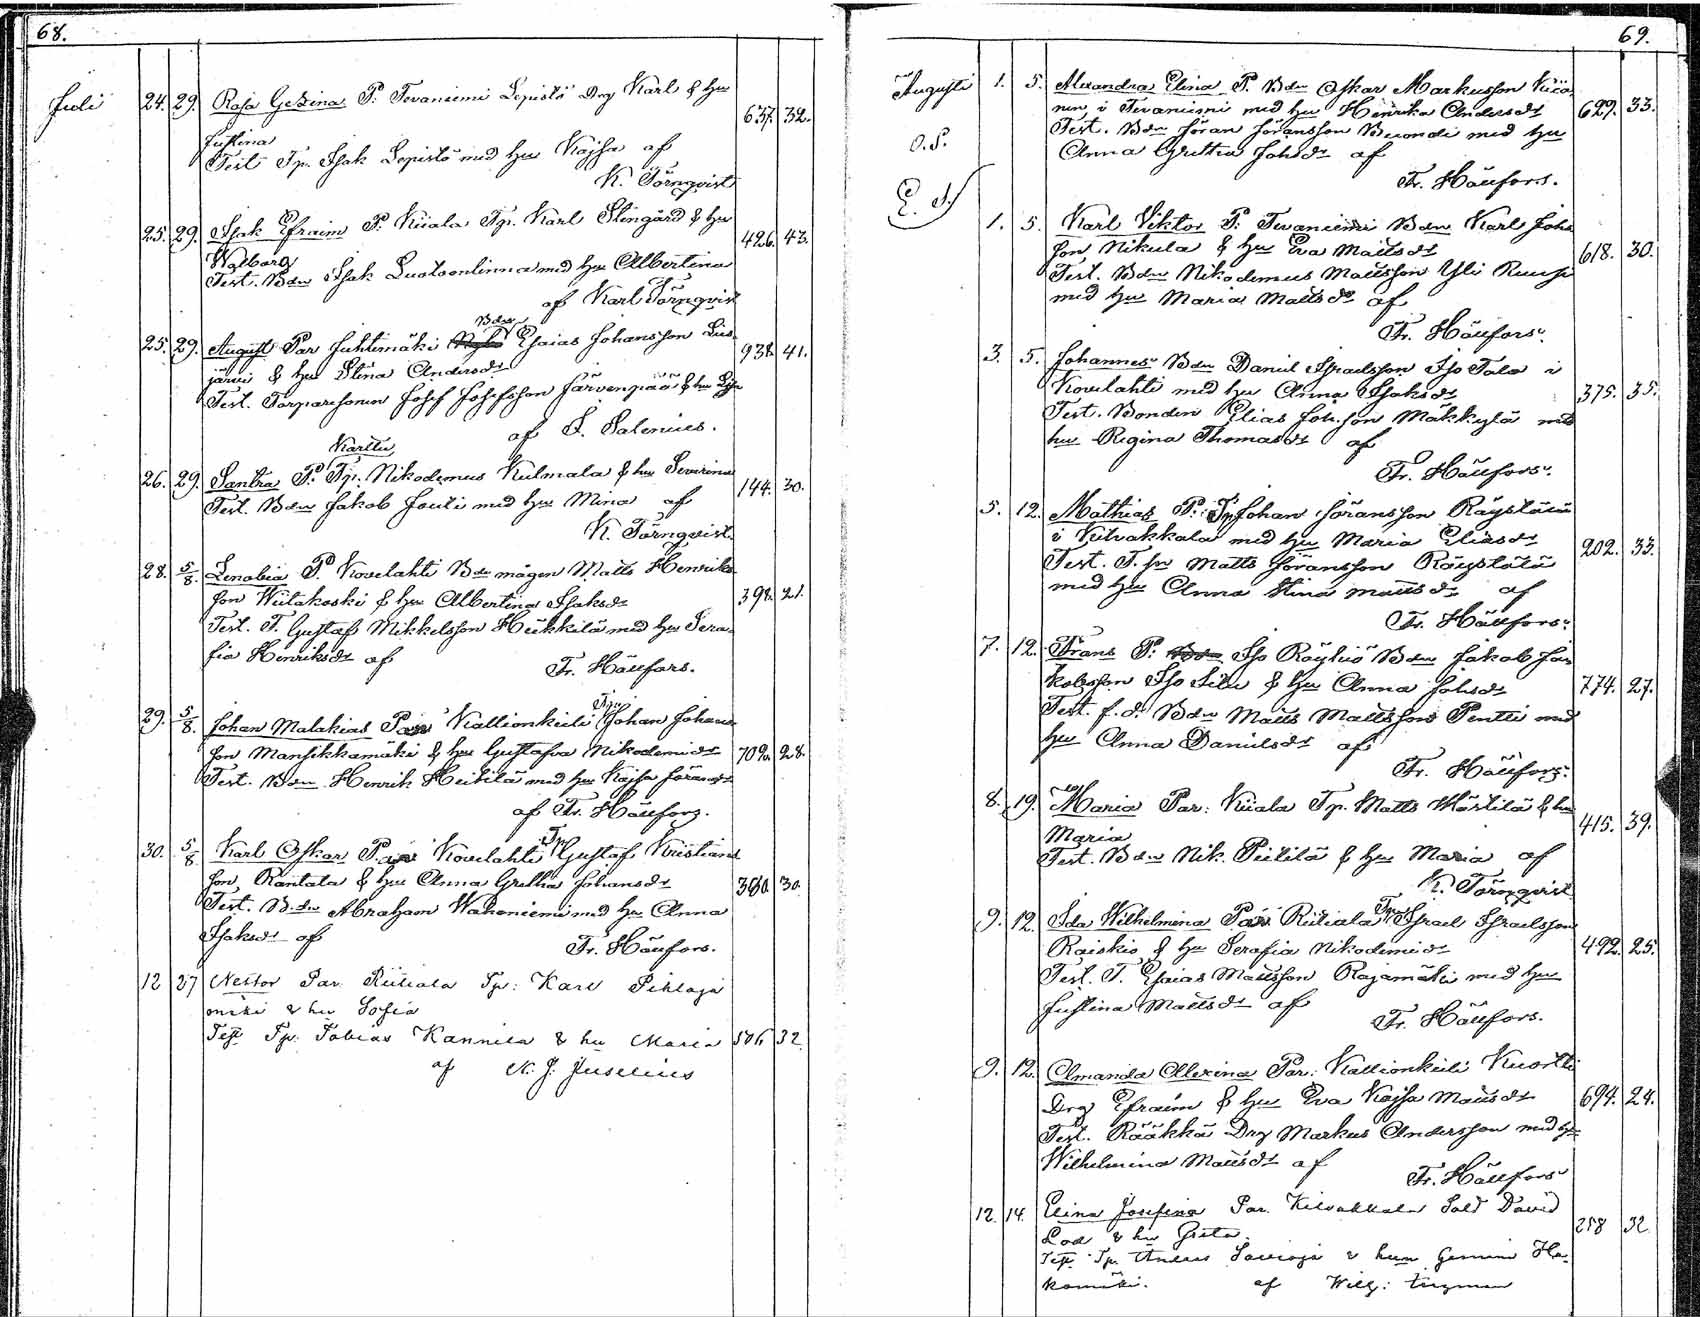 68.
Juli 24. 29. Rosa Gesina P: Tevaniemi Lepistö Drg Karl & hu 637. 32.
Justina
Test Tp. Isak Lepistö med hu Kajsa af
K. Törnqvist
25. 29. Isak Efraim P. Kiiala Tp. Karl Stengård & hu 426. 43.
Walborg
Test. Bdn Isak Luotoonlinna med hu Albertina
af Karl Törnqvist
25. 29. August Par Juhtimäki Bdn Esaias Johansson Lis- 938. 41.
järvi & hu Stina Andersdr
Test. Torparesonen Josef Josefsson Järvenpää & hu
af S. Salenius.
Karttu
26. 29. Santra P. Tp. Nikodemus Kulmala & hu Severina 144. 30.
Test. Bdn Jakob Jouti med hu Mina af
K. Törnqvist.
28. 5/8. Zenobia P. Kovelahti Bdn mågen Matts Henriks- 398. 21.
son Wiitakoski & hu Albertina Isaksdr
Test. T. Gustaf Mikkelsson Heikkilä med hu Sera-
fia Henriksdr af Fr. Hällfors.
29. 5/8. Johan Malakias Par Kallionkieli Tp. Johan Johans- 702. 28.
son Mansikkamäki & hu Gustafva Nikodemidr
Test. Bdn Henrik Heitilä med hu Kajsa Göransdr
af Fr. Hällfors.
30. 5/8 Karl Oskar Par Kovelahti Tp Gustaf Kristians- 380. 30.
son Rantala & hu Anna Gretha Johansdr
Test. Bdn Abraham Wahoniemi med hu Anna
Isaksdr af Fr. Hällfors.
12 27 Nestor Par. Riitiala Tp: Karl Pihlaja
mäki & hu Sofia
Test Tp. Tobias Kannila & hu Maria 506 32
af N. J. Juselius
69.
Augusti 1. 5. Alexandra Elina P. Bdn Oskar Markusson Kiia- 629. 33.
nen i Tevaniemi med hu Henrika Andersdr
Test. Bdn Jöran Jöransson Buondi med hu
O.S.
Anna Gretha Johsdr af
Fr. Hällfors.
1. 5. Karl Viktor P: Tevaniemi Bdn Karl Johs- 618. 30.
son Nikula & hu Eva Mattsdr
Test. Bdn Nikodemus Mattsson Yli Ruusi
med hu Maria Mattsdr af
Fr. Hällfors.
3. 5. Johannes Bdn Daniel Israelsson Iso Tala i 375. 35.
Kovelahti med hu Anna Isaksdr
Test. Bonden Elias Johsson Mäkkylä med
hu Regina Thomasdr af
Fr. Hällfors.
5. 12. Mathias P: Tp Johan Jöransson Röystälä 202. 33.
i Kilvakkala med hu Maria Eliasdr
Test. T. sn Matts Jöransson Röystälä
med hu Anna Stina Mattsdr af
Fr. Hällfors.
7. 12. Frans P: Iso Röyhiö Bdn Jakob Ja- 774. 27.
kobsson Iso Silu & hu Anna Johsdr
Test. f. d. Bdn Matts Mattsson Pentti med
hu Anna Danielsdr af
Fr. Hällfors.
8. 19. Maria Par: Kiiala Tp. Matts Mästilä & hu 415. 39.
Maria
Test. Bdn Nik. Peitilä & hu Maria af
K. Törnqvist
9. 12. Ida Wilhelmina Par Riitiala Tp Israel Israelsson 492. 25.
Raiskio & hu Serafia Nikodemidr
Test. T. Esaias Mattsson Rajamäki med hu
Justina Mattsdr af
Fr. Hällfors.
9. 12. Amanda Alexina Par: Kallionkieli Kuortti 694. 24.
Drg Efraim & hu Eva Kajsa Mattsdr
Test. Rääkkä Drg Markus Andersson med hu
Wilhelmina Mattsdr af Fr. Hällfors
12. 14. Elina Josefina Par. Kilvakkala Sold David 258 32
Lod & hu Greta.
Test. Tp. Anders & hu Ha-
komäki. af Wilh: